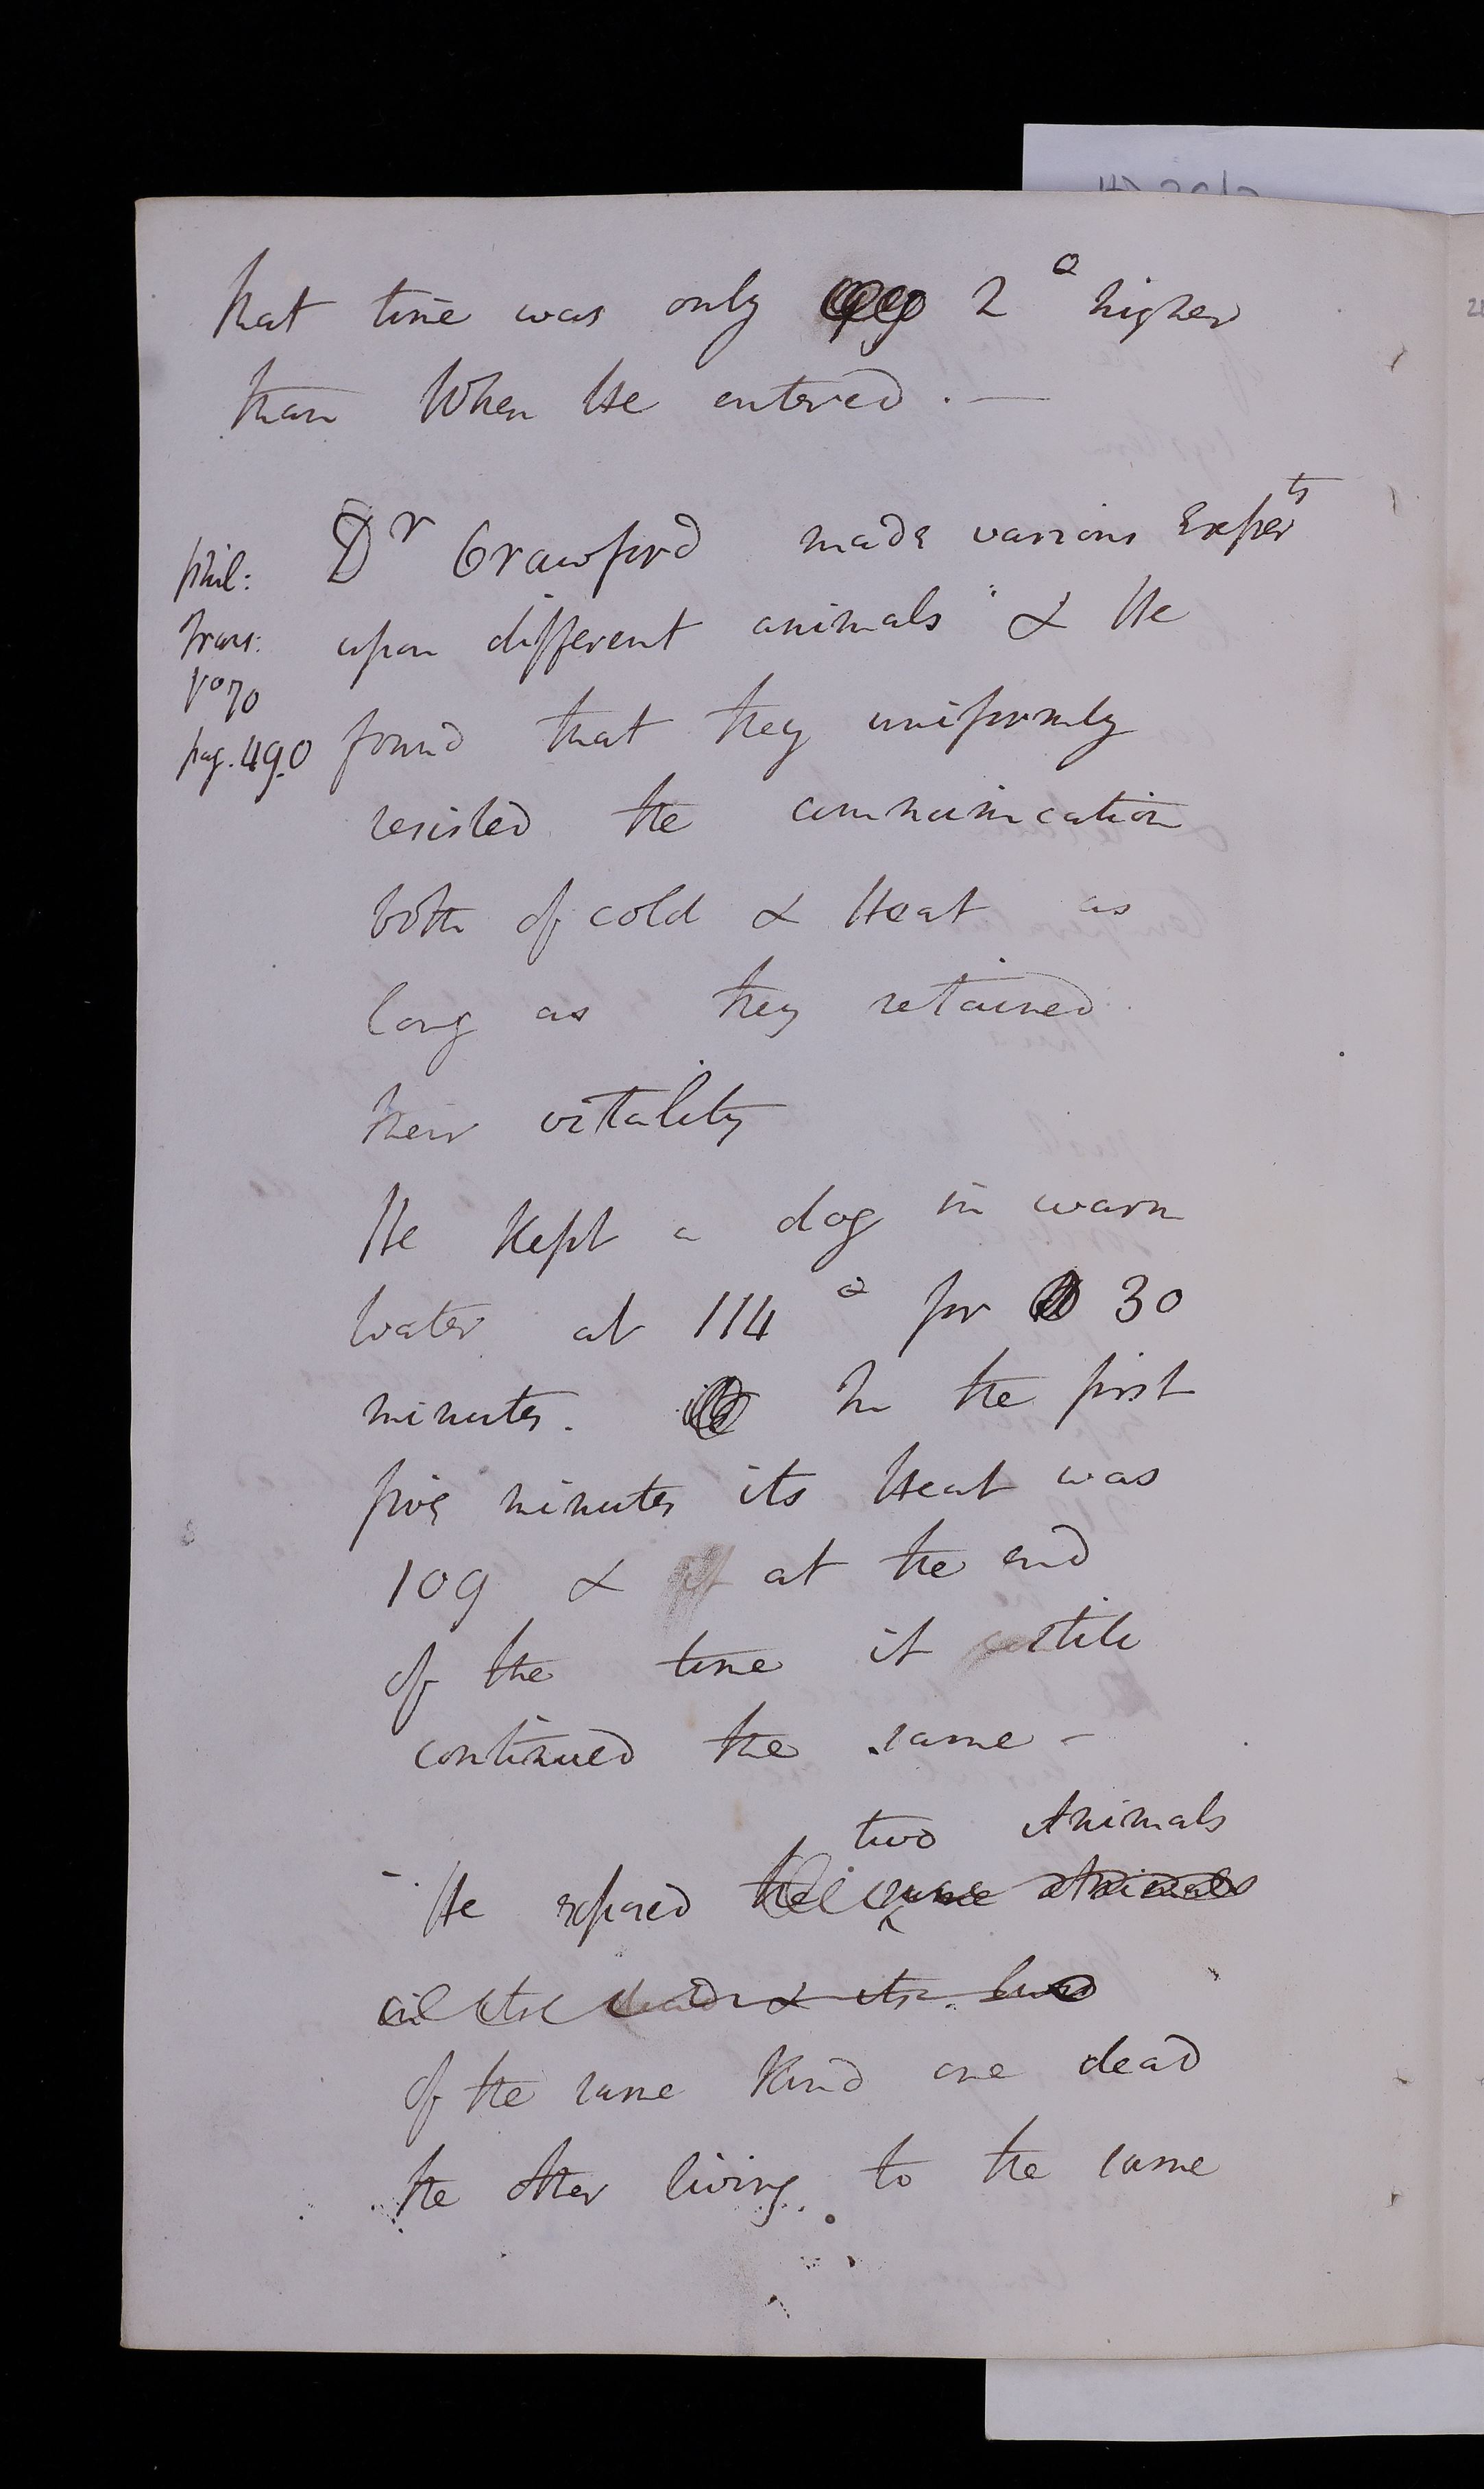 that time was only 2° higher
than When He entered. —
Phil:
Trans:
Vo 70
pag. 490
Dr Crawford made various Experts
upon different animals & He
found that they uniformly
resisted the communication
both of cold & Heat as
long as they retained
their vitality
He Kept a dog in warm
water at 114° for 30
minutes. In the first
five minutes its Heat was
109 & at the end
of the time it still
continued the same -
two Animals
- He exposed the same animals
the dead & the
of the same Kind one dead
the other living to the same